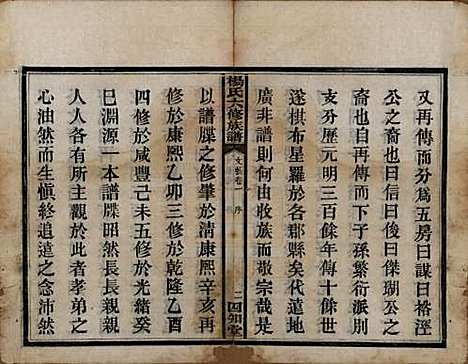 又再傳而分爲五房曰謀曰裕涇
公之裔曰考曰傑瑚公之
裔也自是以下子孫繁衍派別
支分歷元明三百餘年傳十餘世
遂棋布星羅於各郡縣矣代遠地
廣非譜則何由收族而敬宗哉是
楊氏六修族譜
文藝卷一 序
二 四知堂
以譜牒之修肇於清康熙辛亥再
修於康熙乙卯三修於乾隆乙酉
四修於咸豐己未五修於光緒癸
巳淵源一本譜牒昭然長長親親
人人各有所主觀於此者孝弟之
心油然而生愼終追遠之念沛然